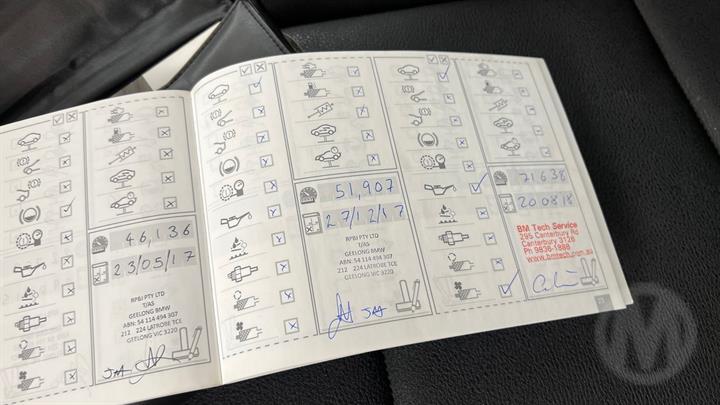 46,136
23/05/17
RPBI PTY LTD
T/AS
GEELONG BMW
ABN: 54 114 494 307
212 224 LATROBE TCE
GEELONG VIC 3220
JAA
51,907
27/12/17
RPBI PTY LTD
T/AS
GEELONG BMW
ABN: 54 114 494 307
212 224 LATROBE TCE
GEELONG VIC 3220
JAA
71638
200818
BM Tech Service
295 Canterbury Rd
Canterbury 3126
Ph 9836-1888
M